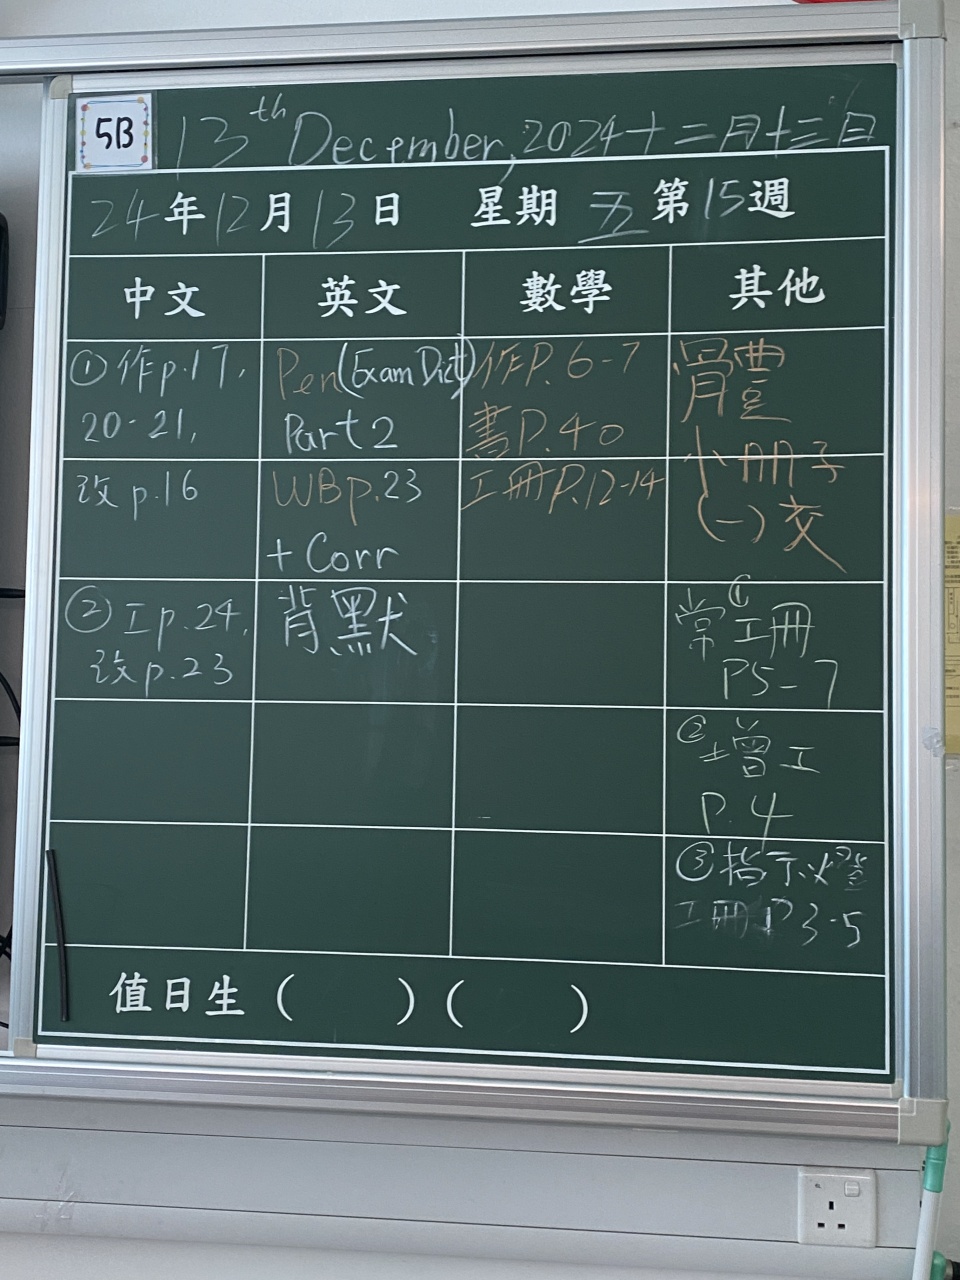 5B
13th December, 2024 十二月十三日
24年12月13日 星期五 第15週
中文 英文 數學 其他
①作p.17,
20-21,
改p.16
②工p.24,
改p.23
Pen(Exam Dict)
Part 2
WB p.23
+ Corr
背默
作P.6-7
書P.40
工冊P.12-14
體
小冊子
(一)交
①
常工冊
P5-7
②增工
P.4
③指示燈
工冊P3-5
值日生 ( ) ( )